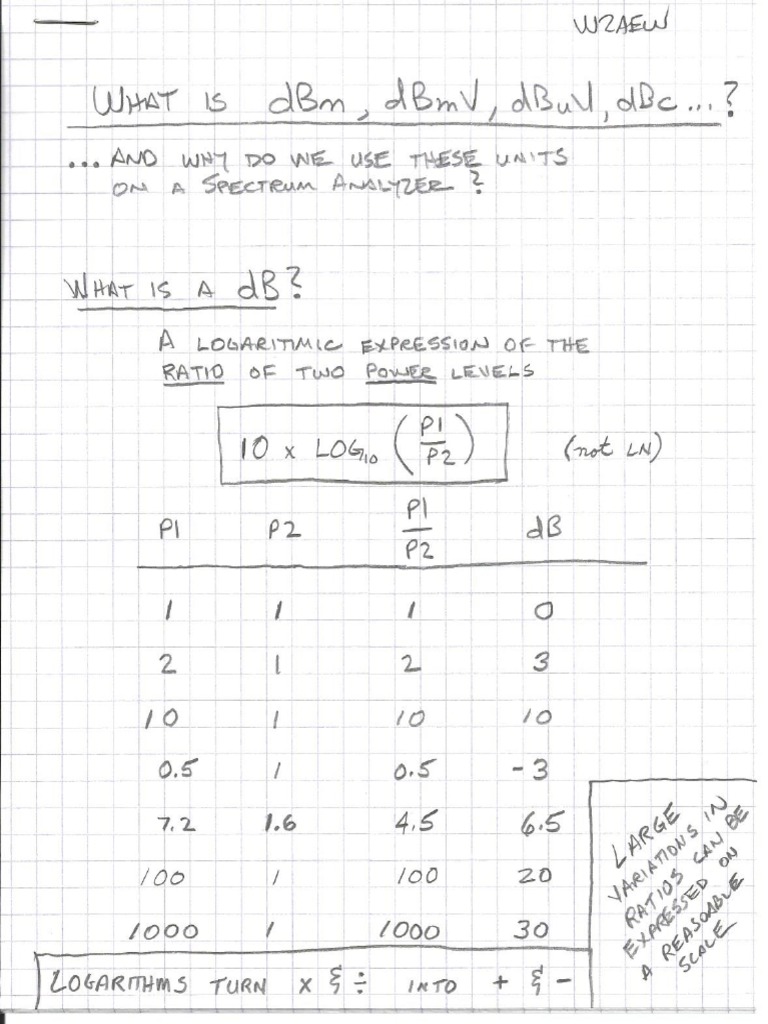 W2AEW
WHAT IS dBm, dBmV, dBuV, dBc...?
... AND WHY DO WE USE THESE UNITS
ON A SPECTRUM ANALYZER?
WHAT IS A dB?
A LOGARITMIC EXPRESSION OF THE
RATIO OF TWO POWER LEVELS
10 x LOG₁₀ (P1/P2) (not LN)
P1 P2 P1/P2 dB
1 1 1 0
2 1 2 3
10 1 10 10
0.5 1 0.5 -3
7.2 1.6 4.5 6.5
100 1 100 20
1000 1 1000 30
LARGE
VARIATIONS IN
RATIOS CAN BE
EXPRESSED ON
A REASONABLE
SCALE
LOGARITHMS TURN x & ÷ INTO + & -